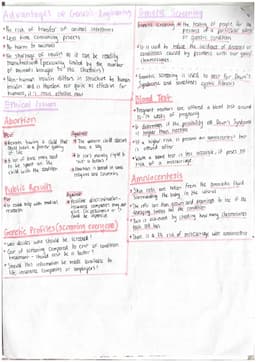 Advantages of Genetic Engineering
• No risk of transfer of animal infections
• Less time consuming process
• No harm to animals
• No shortage of insulin as it can be readily
manufactured
• Non-human insulin differs in structure to human
insulin and is therefore not quite as effective for
humans, it's more effective now
Ethical Issues
Abortion
For
• Parents having a child that
will have a poorer quality
of life
• A lot of time, money need
to be spent on the
child with the condition
Against
• The unborn child doesn't
have a say
• Is it one's moral right to
get a baby?
• Abortion is banned in some
religions and countries
Public Results
For
• It could help with medical
research
Against
• Positive discrimination -
insurance companies may not
give life insurance or it
could be expensive
Genetic Profiles (screening everyone)
• Who decides who should be screened?
• Cost of screening compared to cost of condition
treatment - should cost be a factor?
• Should this information be made available to
life insurance companies or employers?
Genetic Screening
Genetic screening is the testing of people for the
presence of a particular allele
or genetic condition
• It is used to reduce the incidence of diseases or
conditions caused by problems with our genes/
chromosomes
• Genetic screening is used to test for Down's
Syndrome and sometimes cystic fibrosis
Blood Test
• Pregnant mothers are offered a blood test around
weeks of pregnancy
• It determines if the probability of Down's Syndrome
is higher than normal
• If a higher risk is present an amniocentesis test
is offered after
• While a blood test is less accurate, it poses no
risk of a miscarriage
Amniocentesis
• Skin cells are taken from the amniotic fluid
surrounding the baby in the womb
• The cells are then grown and examined to see if the
developing foetus has the condition
• This is discovered by checking how many chromosomes
each cell has
• There is a 1% risk of miscarriage with amniocentesis